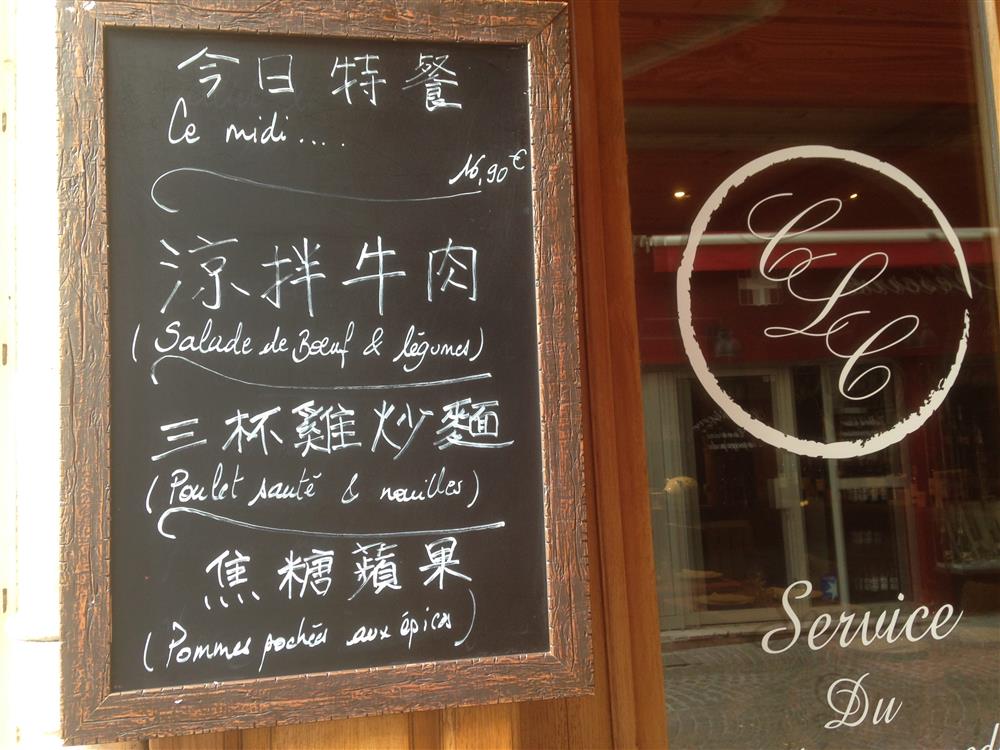 今日特餐
Ce midi....
16,90€
涼拌牛肉
(Salade de Bœuf & légumes)
三杯雞炒麵
(Poulet sauté & nouilles)
焦糖蘋果
(Pommes pochées aux épices)
CLC
Service
Du